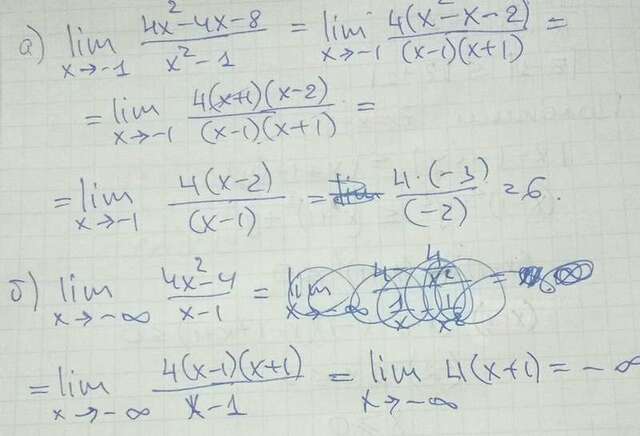 а) lim x→-1 (4x²-4x-8)/(x²-1) = lim x→-1 4(x²-x-2)/((x-1)(x+1)) =
= lim x→-1 4(x+1)(x-2)/((x-1)(x+1)) =
= lim x→-1 4(x-2)/(x-1) = 4·(-3)/(-2) = 6.
б) lim x→-∞ (4x²-4)/(x-1) =
= lim x→-∞ 4(x-1)(x+1)/(x-1) = lim x→-∞ 4(x+1) = -∞